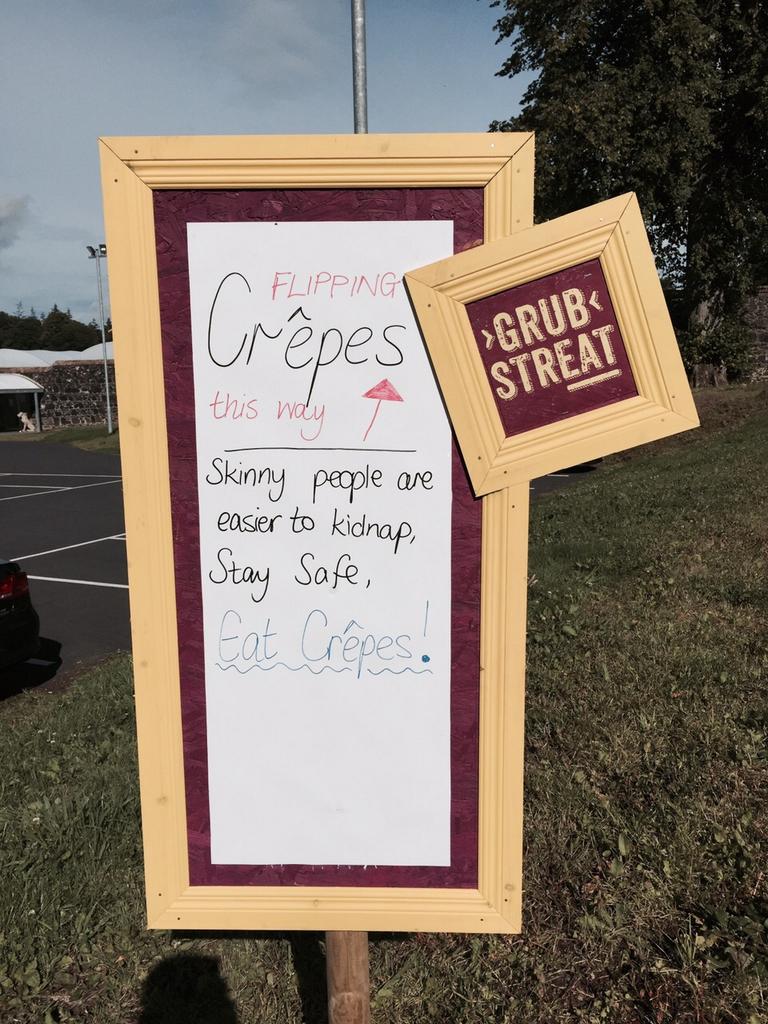 FLIPPING
Crêpes
this way
Skinny people are
easier to kidnap,
Stay Safe,
Eat Crêpes!
>GRUB<
STREAT